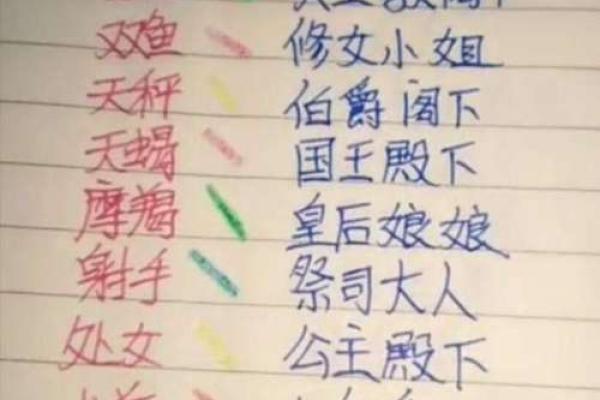 双鱼 修女小姐
天秤 伯爵阁下
天蝎 国王殿下
摩羯 皇后娘娘
射手 祭司大人
处女 公主殿下